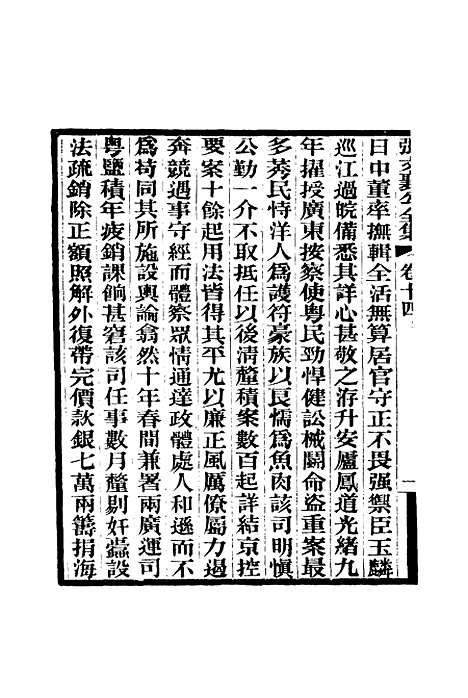 張文襄公全集 卷十四 一
日中董率撫輯全活無算居官守正不畏强禦臣玉麟
巡江過皖備悉其詳心甚敬之洊升安廬鳳道光緒九
年擢授廣東按察使粵民勁悍健訟械鬬命盜重案最
多莠民恃洋人爲護符豪族以良懦爲魚肉該司明愼
公勤一介不取抵任以後淸釐積案數百起詳結京控
要案十餘起用法皆得其平尤以廉正風厲僚屬力遏
奔競遇事守經而體察眾情通達政體處人和遜而不
爲苟同其所施設輿論翕然十年春間兼署兩廣運司
粵鹽積年疲銷課餉甚窘該司任事數月釐剔奸蠹設
法疏銷除正額照解外復帶完價款銀七萬兩籌捐海